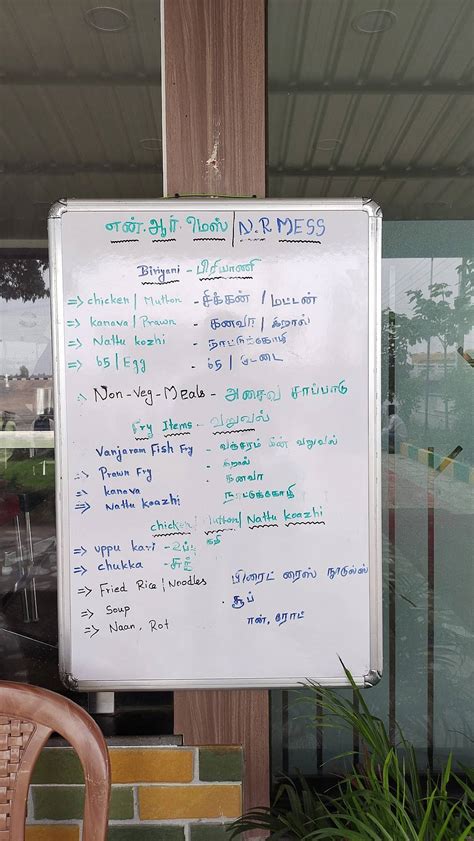 என்.ஆர்.மெஸ் | N.R MESS
Biriyani - பிரியாணி
⇒ chicken / Mutton - சிக்கன் / மட்டன்
⇒ kanava / Prawn - கனவா / இறால்
⇒ Nattu kozhi - நாட்டுக்கோழி
⇒ 65 / Egg - 65 / முட்டை
Non-Veg-Meals - அசைவ சாப்பாடு
Fry Items - வறுவல்
Vanjaram Fish Fry - வஞ்சரம் மீன் வறுவல்
Prawn Fry - இறால்
⇒ kanava - கனவா
⇒ Nattu koazhi நாட்டுக்கோழி
chicken / Mutton / Nattu koazhi
⇒ uppu kari - உப்பு கறி
⇒ chukka -
⇒ Fried Rice / Noodles பிரைட் ரைஸ் நூடுல்ஸ்
⇒ Soup - சூப்
⇒ Naan, Rot நான், ரோட்